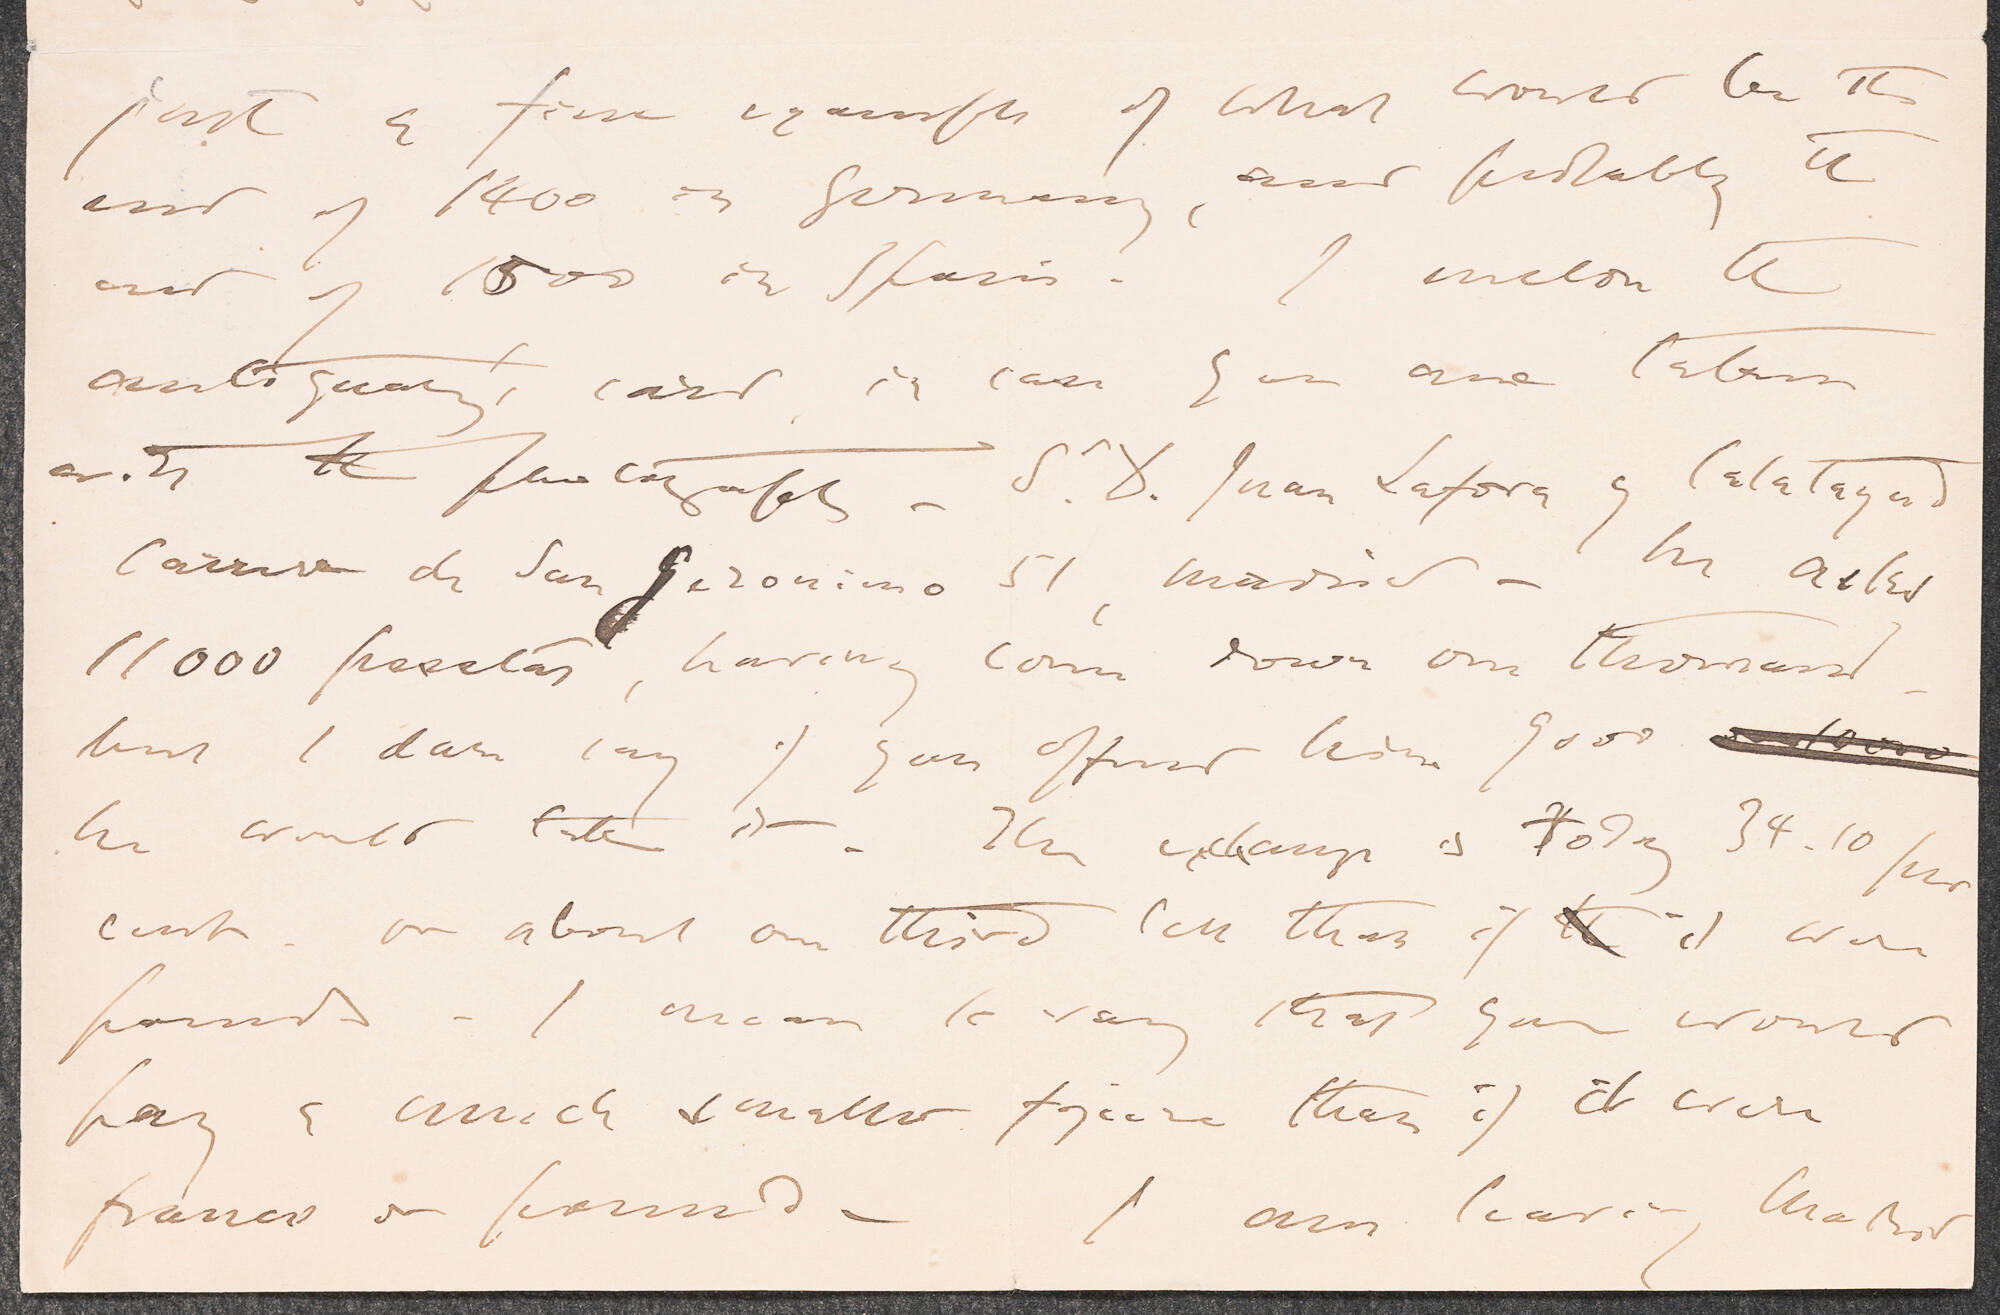 just a fine example of what would be the
end of 1400 in Germany, and probably the
end of 1500 in Spain. I enclose the
antiquary's card, in case you are taken
with the photograph – Sr. D. Juan Lafora y Calatayud
Carrera de San Geronimo 51, Madrid – he asks
11000 pesetas, having come down one thousand –
but I dare say if you offered him 9000 or 10000
he would take it – The exchange is today 34.10 per
cent – or about one third less than if the it were
pounds – I mean to say that you would
pay a much smaller figure than if it were
francs or pounds – I am leaving Madrid